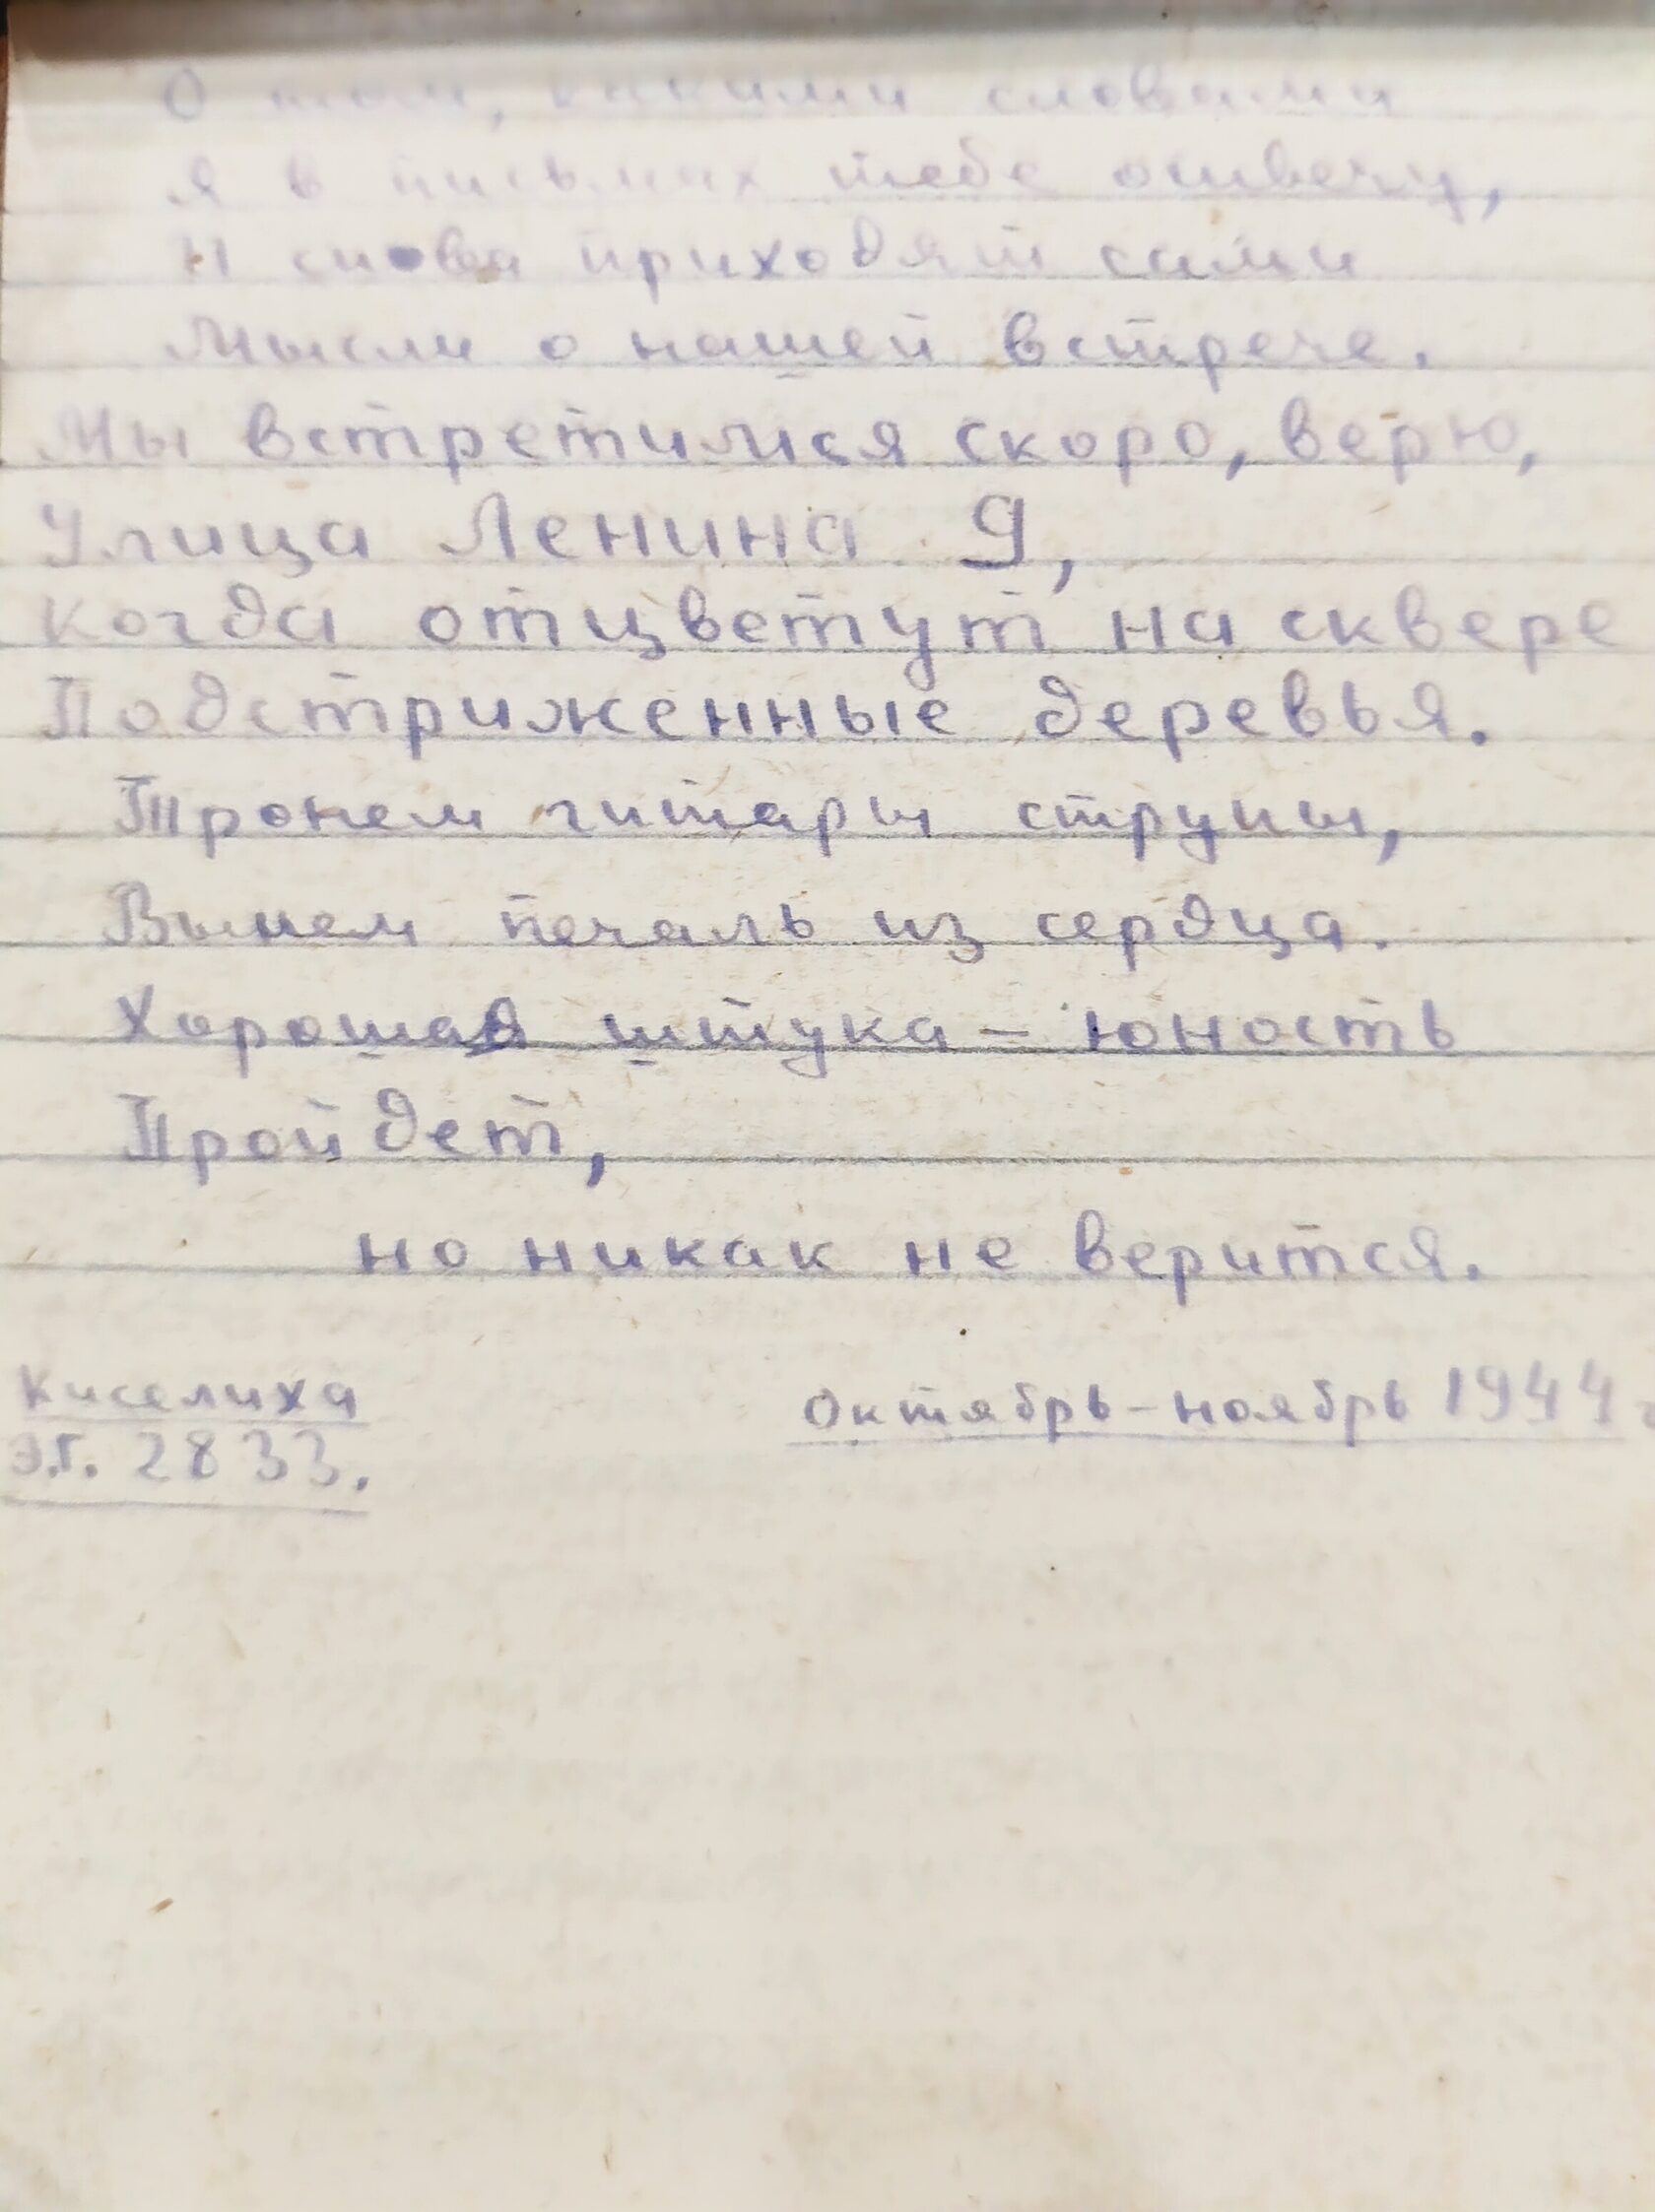 О том, какими словами
Я в письмах тебе отвечу,
И снова приходят сами
Мысли о нашей встрече.
Мы встретимся скоро, верю,
Улица Ленина 9,
Когда отцветут на сквере
Подстриженные деревья.
Тронем гитары струны,
Вынем печаль из сердца.
Хорошая штука – юность
Пройдет,
но никак не верится.
Киселиха
Октябрь-ноябрь 1944 г
Э.Г. 2833.